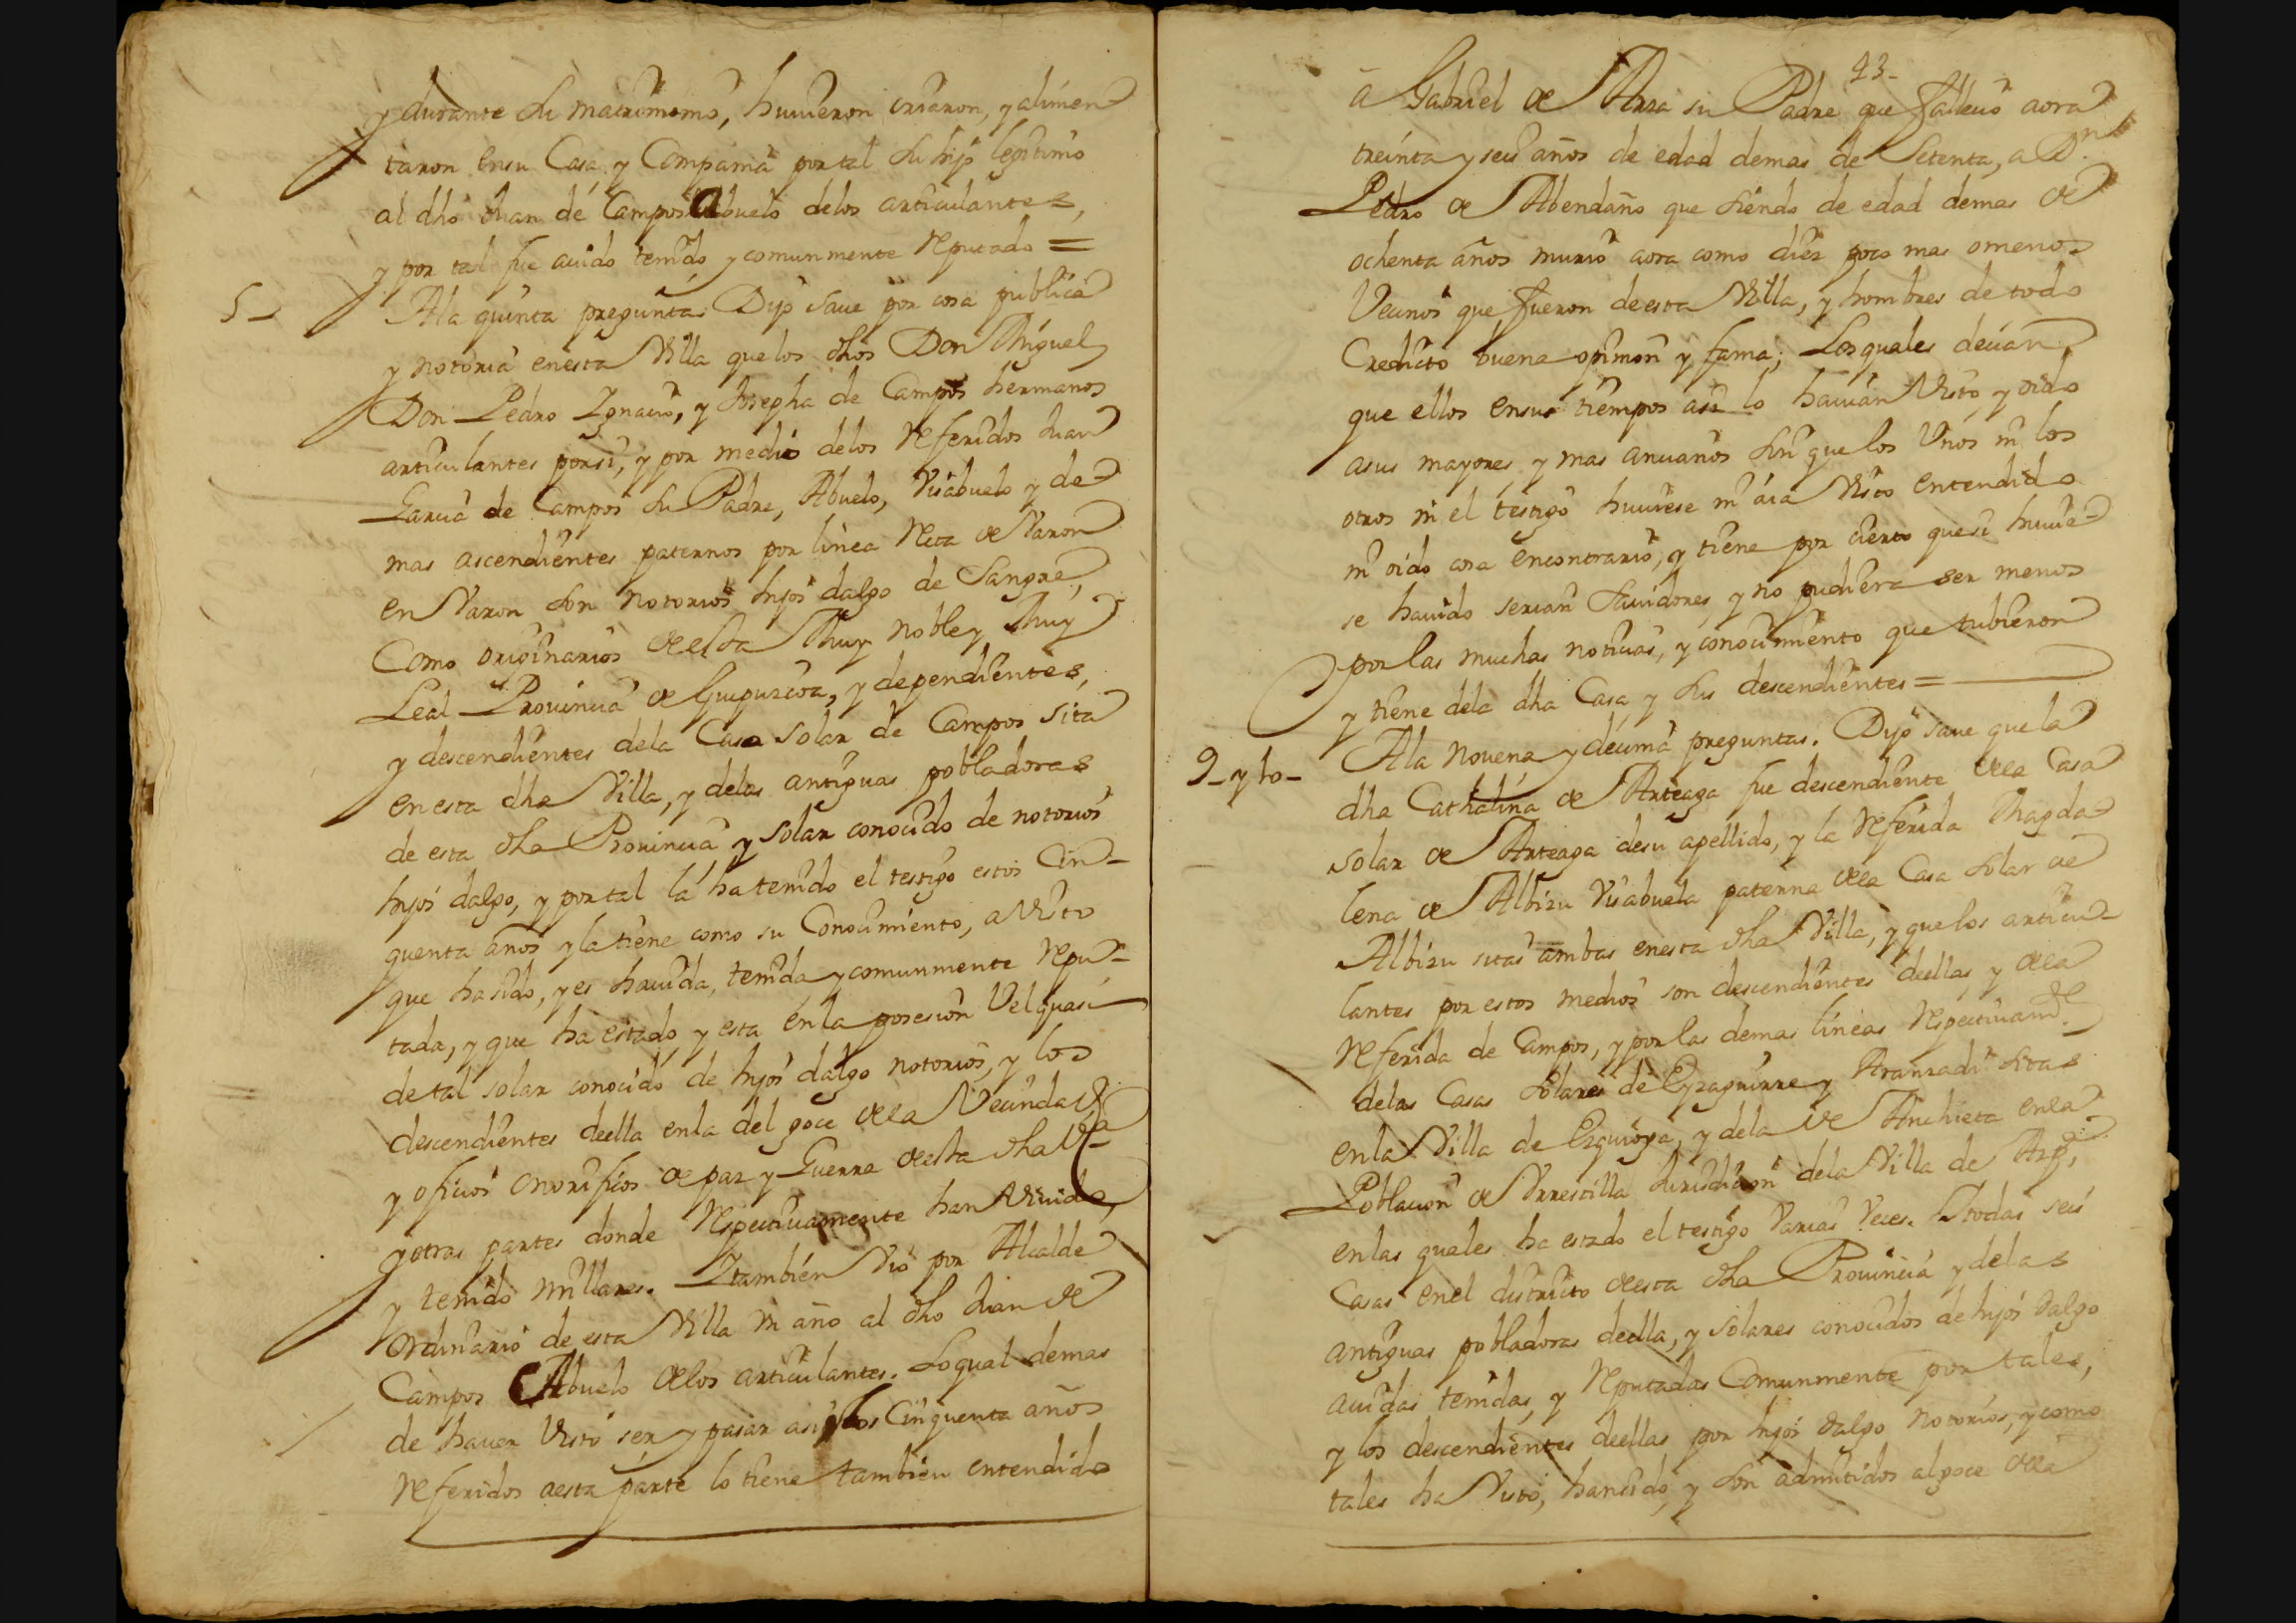 y durante su matrimonio, huuieron criaron, y alimen
taron ensu Casa y Compania por tal su hijo legitimo
al dho Juan de Campos Abuelo delos articulantes,
y por tal fue auido tenido y comunmente Reputado =
5_ Ala quinta pregunta Dijo saue por cosa publica
y notoria enesta Villa quelos dhos Don Miguel
Don Pedro Ignacio, y Josepha de Campos hermanos
articulantes porsi, y por medio delos Referidos Juan
Garcia de Campos su Padre, Abuelo, Visabuelo y de
mas ascendientes paternos por linea Recta de Varon
en Varon son notorios hijos dalgo de Sangre,
Como originarios de esta Muy noble y Muy
Leal Prouincia de Guipuzcoa, y dependientes,
y descendientes dela Casa Solar de Campos sita
enesta dha Villa, y delas antiguas pobladoras
de esta dha Prouincia y solar conocido de notorios
hijos dalgo, y portal la ha tenido el testigo estos Cin_
quenta años y la tiene como su Conocimiento, a Visto
que ha sido, y es hauida, tenida y comunmente Repu_
tada, y que ha estado y esta enla posesion Velquasi
detal solar conocido de hijos dalgo notorios, y los
descendientes deella enla del goce dela Vecindad,
y oficios onorificos de paz y Guerra de esta dha Vª
y otras partes donde Respectiuamente han Viuido,
y tenido millares. Y tambien Vio por Alcalde
Ordinario de esta Villa Vn año al dho Juan de
Campos Abuelo delos articulantes. Lo qual demas
de hauer Visto ser y pasar asi los Cinquenta años
Referidos aesta parte lo tiene tambien entendido
43_
à Gabriel de Arza su Padre que fallecio aora
treinta y seis años de edad demas de Setenta, a Dn
Pedro de Abendaño que siendo de edad demas de
ochenta años murio aora como diez poco mas omenos
Vecinos que fueron de esta Villa, y hombres de todo
Credicto buena opinion y fama; Los quales decian
que ellos ensus tiempos asi lo hauian Visto, y oido
asus mayores y mas ancianos sin que los Vnos ni los
otros ni el testigo huuiese ni aia Visto entendido
ni oido cosa encontrario, y tiene por cierto quesi huuie
se hauido serian sauidores, y no pudiera ser menos
por las muchas noticias, y conocimiento que tubieron
y tiene dela dha Casa y sus descendientes =
9_ y 10_ Ala nouena y decima preguntas. Dijo saue que la
dha Cathalina de Arteaga fue descendiente dela Casa
solar de Arteaga desu apellido, y la Referida Magda
lena de Albizu Visabuela paterna dela Casa solar de
Albizu sitas ambas enesta dha Villa, y quelos articu_
lantes por estos medios son descendientes deellas, y dela
Referida de Campos, y por las demas lineas Respectiuamte
delas Casas Solares de Eyzaguirre y Aranzadi sitas
enla Villa de Ezquioga, y dela de Anchieta enla
Poblacion de Vrrestilla Jurisdicion dela Villa de Azpa,
enlas quales ha estado el testigo Varias Veces. Y todas seis
Casas enel districto de esta dha Prouincia y delas
antiguas pobladoras deella, y solares conocidos de hijos dalgo
auidas tenidas, y Reputadas Comunmente por tales,
y los descendientes deellas por hijos dalgo notorios, y como
tales ha Visto, han sido, y son admitidos algoce dela